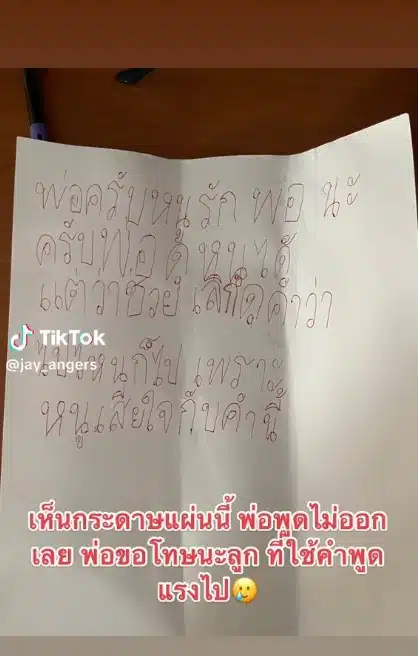 พ่อครับหนูรัก พ่อ นะ
ครับพ่อ ดุ หนูได้
แต่ว่าช่วย เลิกใช้คำว่า
TikTok
@jay_angers
ไปไหนก็ไป เพราะ
หนูเสียใจกับคำนี้
เห็นกระดาษแผ่นนี้ พ่อพูดไม่ออก
เลย พ่อขอโทษนะลูก ที่ใช้คำพูด
แรงไป🥲